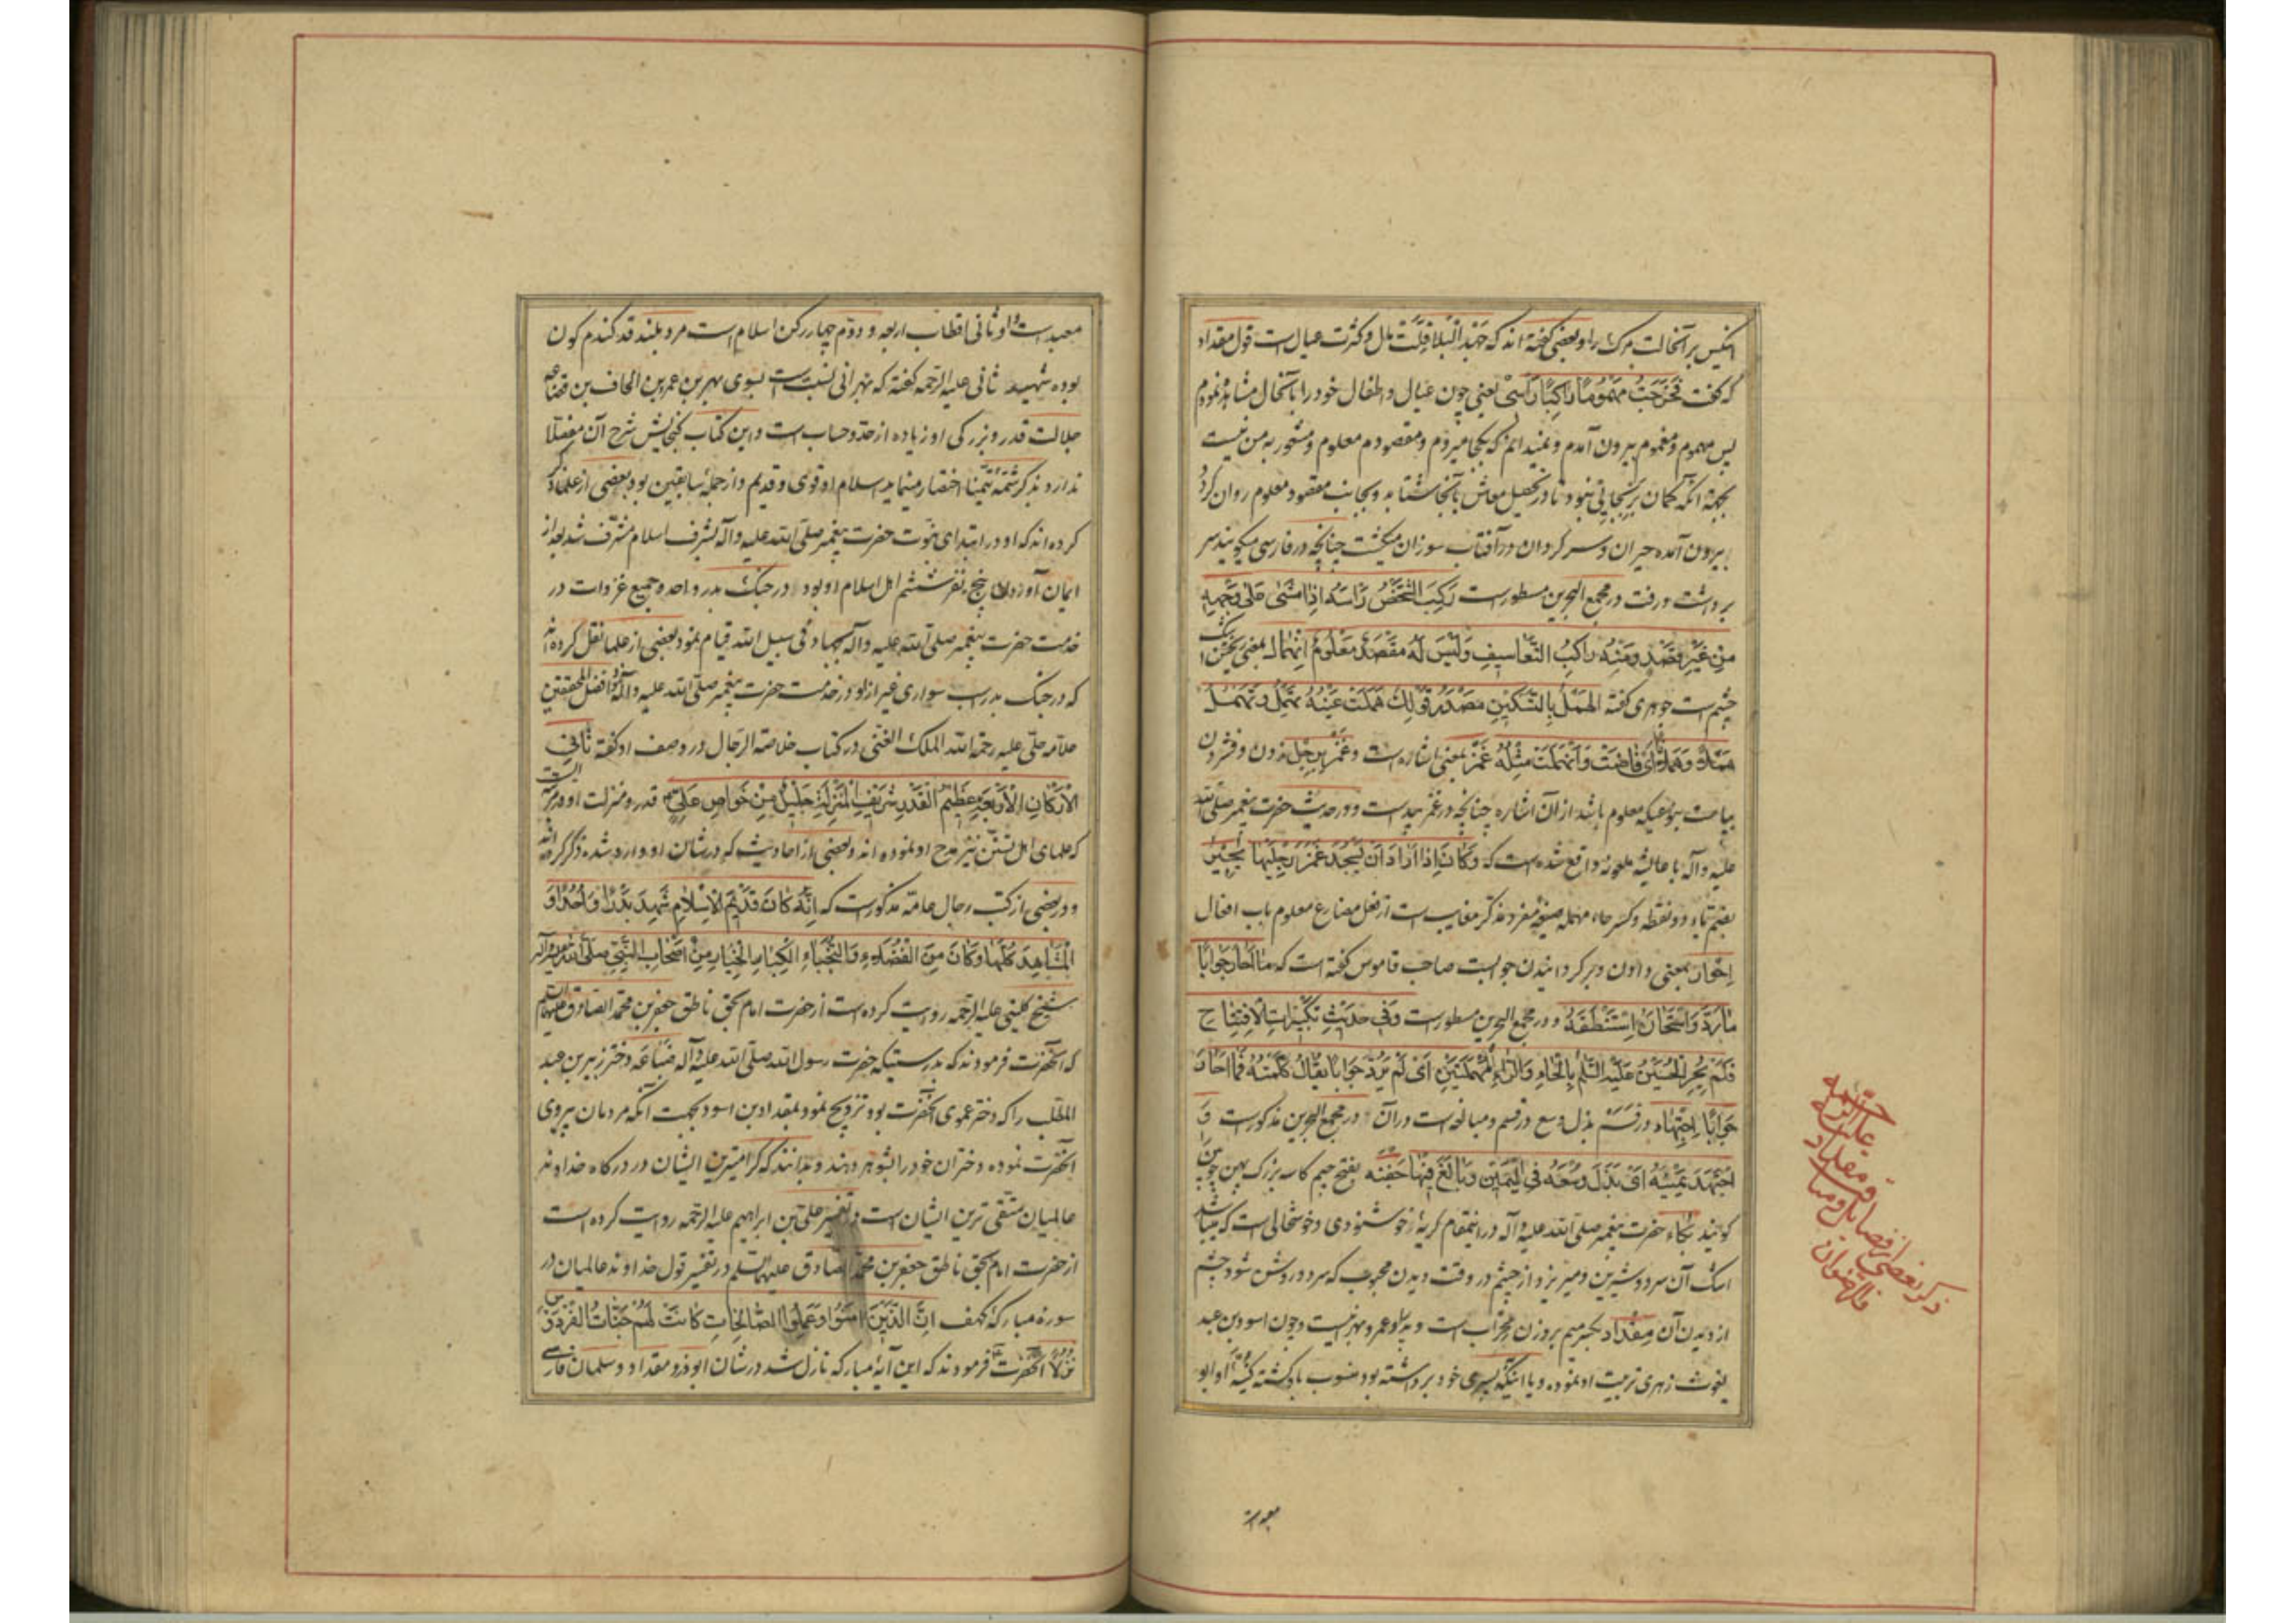 انکس بر آنحالت مرک را و بعضی گفته اند که جَهْدُ الْبَلَا قِلَّتْ مال و کثرت عیال است قول مقداد
که گفت فَخَرَجْتُ مَهْمُومًا رَاكِبًا رَاْسى یعنی چون عیال و اطفال خود را بآنحال مشاهده نمودم
پس مهموم و مغموم بیرون آمدم و نمیدانم که بکجا میروم و مقصودم معلوم و متصور به من نیست
بجهة آنکه کمان بر بجایی نبود تا در تحصیل معاش بآنجا شتابد و بجانب مقصود معلوم روان کردد
بیرون آمده حیران و سر کردان در آفتاب سوزان میکشت چنانچه در فارسی میکویند سر
برداشت و رفت در مجمع البحرین مسطور است رَكِبَ الشَّخْصُ رَاْسَهُ اِذَا مَشٰى عَلٰى وَجْهِهِ
مِنْ غَيْرِ قَصْدٍ وَمِنْهُ رَاكِبُ التَّعَاسِيفِ وَلَيْسَ لَهُ مَقْصَدٌ مَعْلُومٌ اِنْهِمَال بمعنی ریختن اشک
چشم است جوهری کفته الهَمْلُ بِالتَّسْكِينِ مَصْدَرُ قَوْلِكَ هَمَلَتْ عَيْنُهُ تَهْمِلُ وَتَهْمُلُ
هَمْلًا وَهَمَلَانًا اَىْ فَاضَتْ وَانْهَمَلَتْ مِثْلُهُ غَمْز بمعنی اشاره است و غَمْز بِرِجْل زدن و فشردن
بپاست بنوعیکه معلوم باشد از آن اشاره چنانچه در غمز بید است و در حدیث حضرت پیغمبر صلی الله
علیه و آله با عایشه ملعونه واقع شده است که وَكَانَ اِذَا اَرَادَ اَنْ يَسْجُدَ غَمَزَ رِجْلَيْهَا يُحِيرُ
بضم یاء دو نقطه و کسر حاء مهمله صیغهٔ مفرد مذکر مغایب است از فعل مضارع معلوم باب افعال
اِحْوَار بمعنی دادن و بر کردانیدن جوابست صاحب قاموس کفته است که مَا اَحَارَ جَوَابًا
مَا رَدَّ وَاسْتَحَارَ اِسْتَنْطَقَهُ و در مجمع البحرین مسطور است وَفِى حَدِيثِ تَكْبِيرَاتِ الْاِفْتِتَاحِ
فَلَمْ يُحِرِ الْحُسَيْنُ عَلَيْهِ السَّلَمُ بِالْحَاءِ وَالرَّاءِ الْمُهْمَلَتَيْنِ اَىْ لَمْ يَرُدَّ جَوَابًا يُقَالُ كَلَّمْتُهُ فَمَا اَحَارَ
جَوَابًا اِجْتِهَاد در قَسَمْ بذل وسع در قسم و مبالغه است در آن در مجمع البحرین مذکور است وَ
اجْتَهَدَ يَمِينَهُ اَىْ بَذَلَ وُسْعَهُ فِى الْيَمِينِ وَبَالَغَ فِيهَا جَفْنَه بفتح جیم کاسه بزرک پهن چوبین را
کویند بُكَاء حضرت پیغمبر صلی الله علیه و آله در اینمقام کریه از خوشنودی و خوشحالی است که میباشد
اشک آن سرد و شیرین و میریزد از چشم در وقت دیدن محبوب که سرد و روشن شود چشم
از دیدن آن مِقْدَاد بکسر میم بر وزن مِحْرَاب است و پدر او عمرو بهرانیست و چون اسود بن عبد
یغوث زهری تربیت او نموده و یا اینکه بپسری خود برداشته بود منسوب باو کشته کنیهٔ او ابو
معبد
ذکر بعضی از فضایل و مناقب مقداد علیه الرحمه والرضوان
معبد است و او ثانی اقطاب اربعه و دوّم چهار رکن اسلام است مرد بلند قد کندم کون
بوده شهید ثانی علیه الرحمه کفته که بهرانی نسبت است بسوی بهر بن عمرو بن الحاف بن قضاعه
جلالت قدر و بزرکی او زیاده از حدّ و حساب است و این کتاب کنجایش شرح آن مفصّلا
ندارد بذکر شمّهٔ تیمّنا اختصار مینماید اسلام او قوی و قدیم و از جملهٔ سابقین بود بعضی از علما ذکر
کرده اند که او در ابتدای نبوّت حضرت پیغمبر صلی الله علیه و آله بشرف اسلام مشرّف شد بعد از
ایمان آوردن پنج نفر ششم اهل اسلام او بود و در جنک بدر و احد و جمیع غزوات در
خدمت حضرت پیغمبر صلی الله علیه و آله بجهاد فی سبیل الله قیام نمود بعضی از علما نقل کرده اند
که در جنک بدر اسب سواری غیر از او در خدمت حضرت پیغمبر صلی الله علیه و آله نبود و افضل المحققین
علاّمه حلّی علیه رحمة الله الملک الغنی در کتاب خلاصة الرجال در وصف او کفته ثَانِى
الْاَرْكَانِ الْاَرْبَعَةِ عَظِيمُ الْقَدْرِ شَرِيفُ الْمَنْزِلَةِ جَلِيلٌ مِنْ خَوَاصِ عَلِىٍّ قدر و منزلت او بمرتبه ایست
که علمای اهل تسنّن نیز مدح او نموده اند و بعضی از احادیث که در شان او وارد شده ذکر کرده اند
و در بعضی از کتب رجال عامّه مذکور است که اِنَّهُ كَانَ قَدِيمَ الْاِسْلَامِ شَهِدَ بَدْرًا وَاُحُدًا وَ
الْمَشَاهِدَ كُلَّهَا وَكَانَ مِنَ الْفُضَلَاءِ وَالنُّجَبَاءِ الْكِبَارِ الْخِيَارِ مِنْ اَصْحَابِ النَّبِىِّ صَلَّى الله علیه و آله
شیخ کلینی علیه الرحمه روایت کرده است از حضرت امام بحق ناطق جعفر بن محمّد الصادق علیهما السلم
که آنحضرت فرمودند که بدرستیکه حضرت رسول الله صلی الله علیه و آله ضباعه دختر زبیر بن عبد
المطّلب را که دختر عموی آنحضرت بود تزویج نمود بمقداد بن اسود بجهت آنکه مردمان پیروی
آنحضرت نموده دختران خود را بشوهر دهند و بدانند که کرامیترین ایشان در درکاه خداوند
عالمیان متّقی ترین ایشان است و در تفسیر علی بن ابراهیم علیه الرحمه روایت کرده است
از حضرت امام بحق ناطق جعفر بن محمّد الصادق علیهما السلم در تفسیر قول خداوند عالمیان در
سورهٔ مبارکهٔ کهف اِنَّ الَّذِينَ اٰمَنُوا وَعَمِلُوا الصَّالِحَاتِ كَانَتْ لَهُمْ جَنَّاتُ الْفِرْدَوْسِ
نُزُلًا آنحضرت فرمودند که این آیهٔ مبارکه نازل شد در شان ابوذر و مقداد و سلمان فارسی